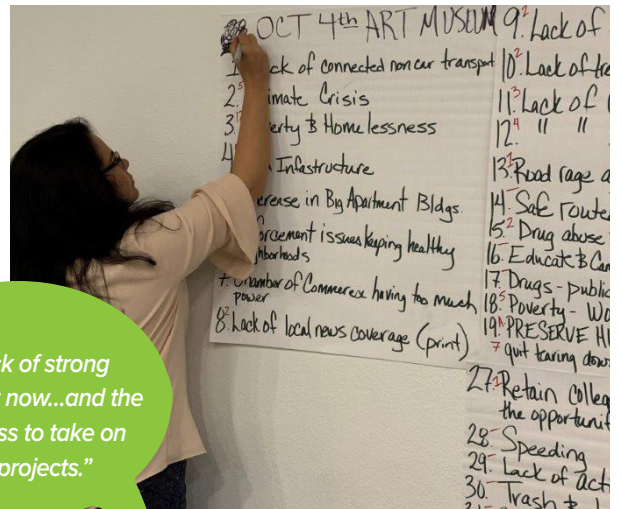 OCT 4th ART MUSEUM
1. ck of connected non car transport
2.5 imate Crisis
3. erty & Homelessness
4 Infastructure
crease in Big Apartment Bldgs.
orcement issues keeping healthy
ghborhoods
7. Chamber of Commerce having too much
power
8.2 Lack of local news coverage (print)
9.2 Lack of
10.2 Lack of tre
11.3 Lack of
12.4 " "
13.1 Road rage a
14. Safe route
15.2 Drug abuse
16. Educate & Com
17. Drugs - public
18.5 Poverty - Wo
19. PRESERVE HI
7 quit taring dow
27.1 Retain colleg
the opportunit
28. Speeding
29. Lack of acti
30. Trash &
ck of strong
now...and the
ss to take on
projects.”